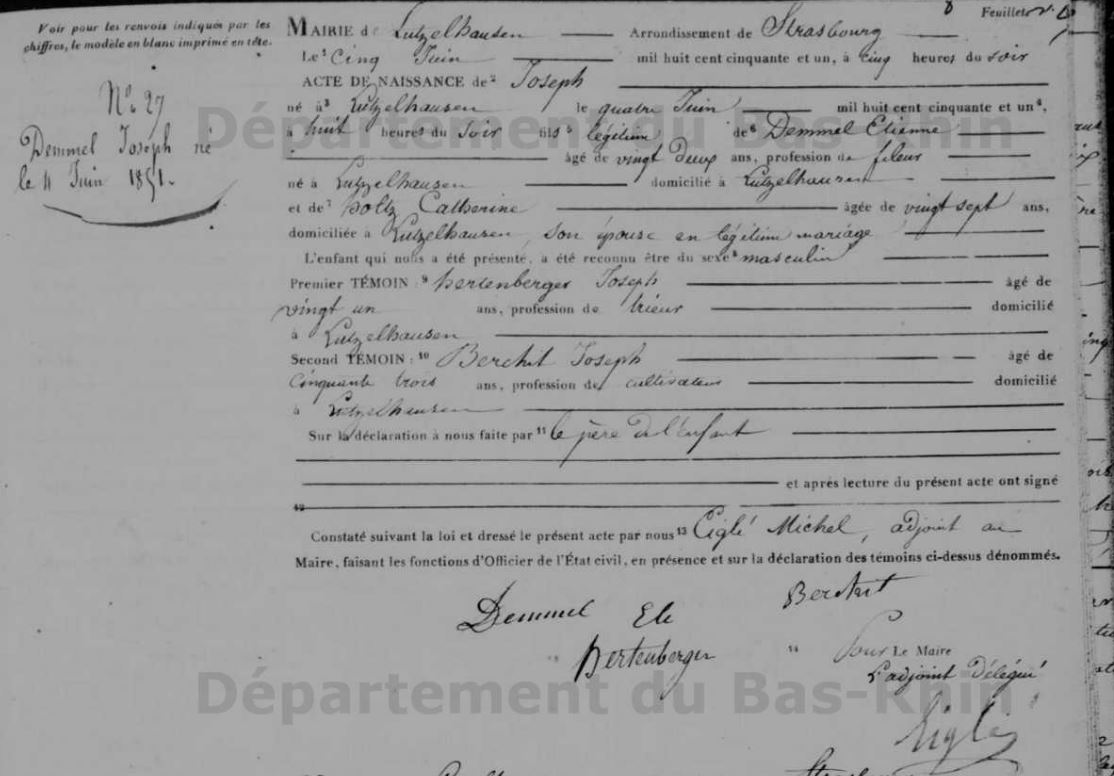 8 Feuillet
Voir pour les renvois indiqués par les
chiffres, le modèle en blanc imprimé en tête.
MAIRIE de Lutzelhausen Arrondissement de Strasbourg
Le 1 Cinq Juin mil huit cent cinquante et un, à cinq heures du soir
ACTE DE NAISSANCE de 2 Joseph
né à 3 Lutzelhausen le quatre Juin mil huit cent cinquante et un 4,
à huit heures du soir fils 5 légitime de 6 Demmel Etienne
âgé de vingt deux ans, profession de fileur
né à Lutzelhausen domicilié à Lutzelhausen
et de 7 Holtz Catherine âgée de vingt sept ans,
domiciliée à Lutzelhausen, son épouse en légitime mariage
L'enfant qui nous a été présenté, a été reconnu être du sexe 8 masculin
Premier TÉMOIN : 9 Hertenberger Joseph âgé de
vingt un ans, profession de trieur domicilié
à Lutzelhausen
Second TÉMOIN : 10 Joseph âgé de
Cinquante trois ans, profession de cultivateur domicilié
à Lutzelhausen
Sur la déclaration à nous faite par 11 le père de l'enfant
et après lecture du présent acte ont signé
12
Constaté suivant la loi et dressé le présent acte par nous 13 Michel, adjoint au
Maire, faisant les fonctions d'Officier de l'État civil, en présence et sur la déclaration des témoins ci-dessus dénommés.
N° 27
Demmel Joseph né
le 4 Juin 1851.
Demmel Ete
Hertenberger
14 Pour Le Maire
L'adjoint Délégué
Département du Bas-Rhin
Département du Bas-Rhin